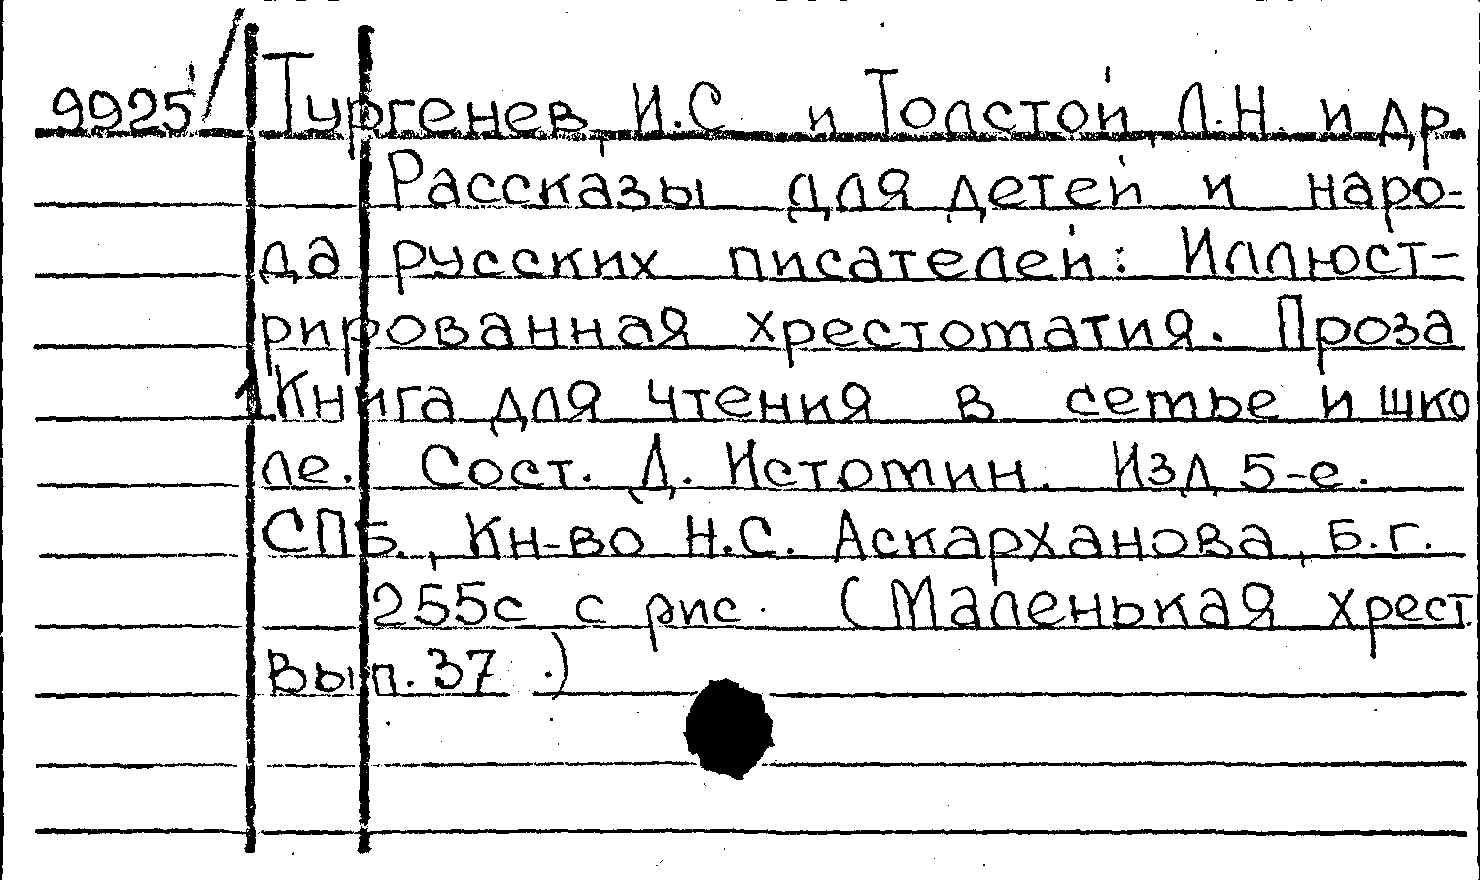 9925/ Тургенев, И.С. и Толстой, Л.Н. и др.
Рассказы для детей и наро-
да русских писателей: Иллюст-
рированная хрестоматия. Проза
1 Книга для чтения в семье и шко
ле. Сост. Д. Истомин. Изд 5-е.
СПБ., Кн-во Н.С. Аскарханова, Б.г.
255с с рис. (Маленькая хрест.
Вып. 37.)